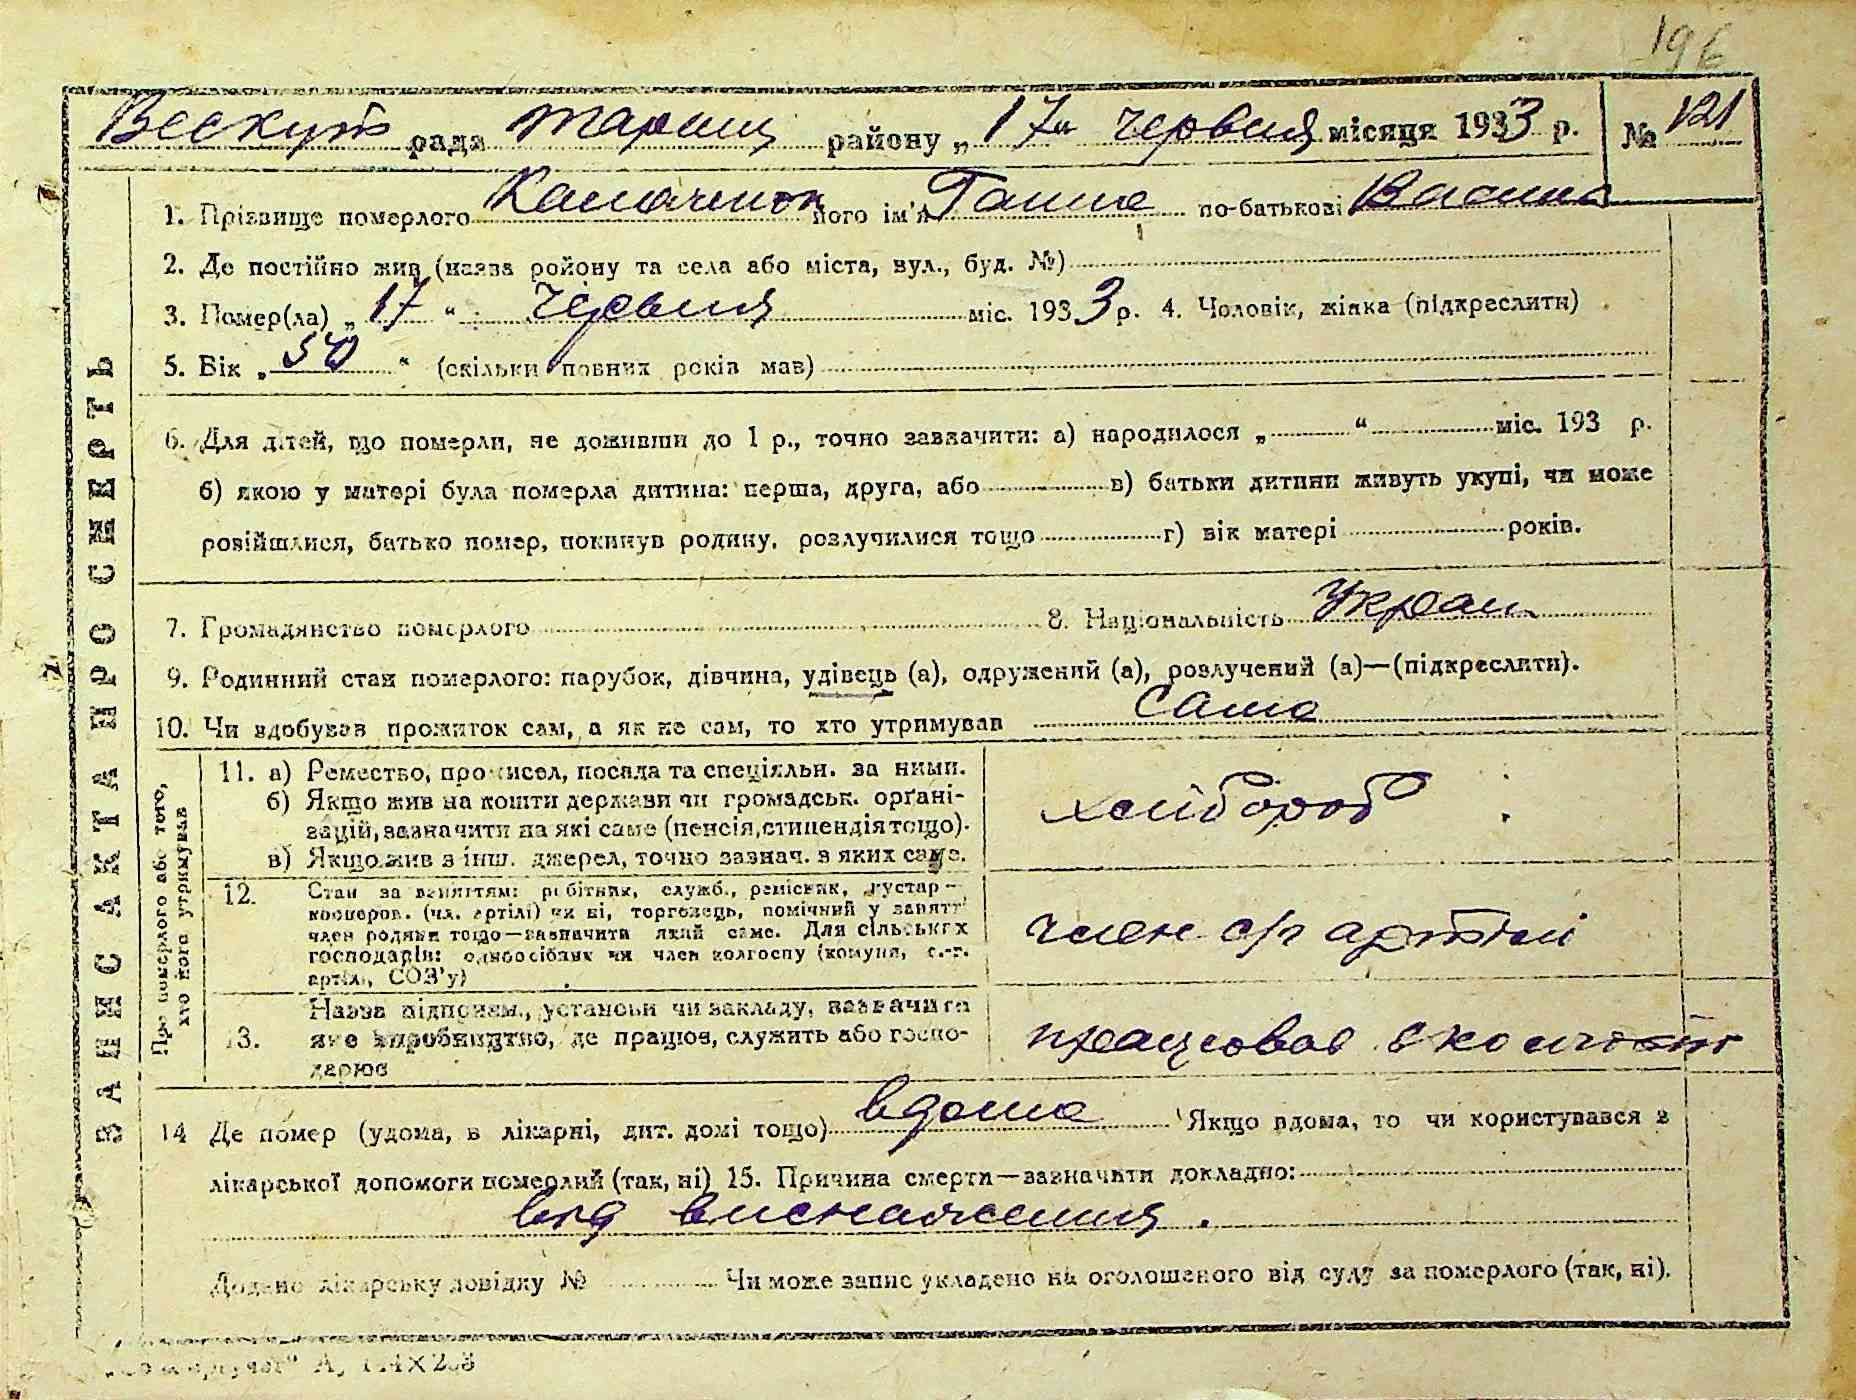 196
Вескут рада Таращ району „ 17 “ червня місяця 1933 р. № 121
ЗАПИС АКТА ПРО СМЕРТЬ
1. Прізвище померлого його ім'я Ганна по-батькові
2. Де постійно жив (назва району та села або міста, вул., буд. №)
3. Помер(ла) „ 17 “ червня міс. 1933 р. 4. Чоловік, жінка (підкреслити)
5. Вік „ 50 “ (скільки повних років мав)
6. Для дітей, що померли, не доживши до 1 р., точно зазначити: а) народилося „ “ міс. 193 р.
б) якою у матері була померла дитина: перша, друга, або в) батьки дитини живуть укупі, чи може
розійшлися, батько помер, покинув родину, розлучилися тощо г) вік матері років.
7. Громадянство померлого 8. Національність Украін
9. Родинний стан померлого: парубок, дівчина, удівець (а), одружений (а), розлучений (а)—(підкреслити).
10. Чи здобував прожиток сам, а як не сам, то хто утримував сама
Про померлого або того,
хто його утримував
11. а) Ремество, промисел, посада та спеціяльн. за ними.
б) Якщо жив на кошти держави чи громадськ. орґані-
зацій, зазначити на які саме (пенсія, стипендія тощо).
в) Якщо жив з інш. джерел, точно зазнач. з яких саме.
хлібороб
12. Стан за заняттям: робітник, служб., ремісник, кустар—
кооперов. (чл. артілі) чи ні, торговець, помічний у занятті
член родини тощо—зазначити який саме. Для сільських
господарів: одноосібник чи член колгоспу (комуни, с.-г.
артілі, СОЗ'у)
член с/г артілі
13. Назва підприєм., установи чи закладу, зазначити
яке виробництво, де працює, служить або госпо-
дарює
працював в
14 Де помер (удома, в лікарні, дит. домі тощо) вдома Якщо вдома, то чи користувався з
лікарської допомоги померлий (так, ні) 15. Причина смерти—зазначити докладно:
від виснаження.
Додано лікарську довідку № Чи може запис укладено на оголошеного від суду за померлого (так, ні).